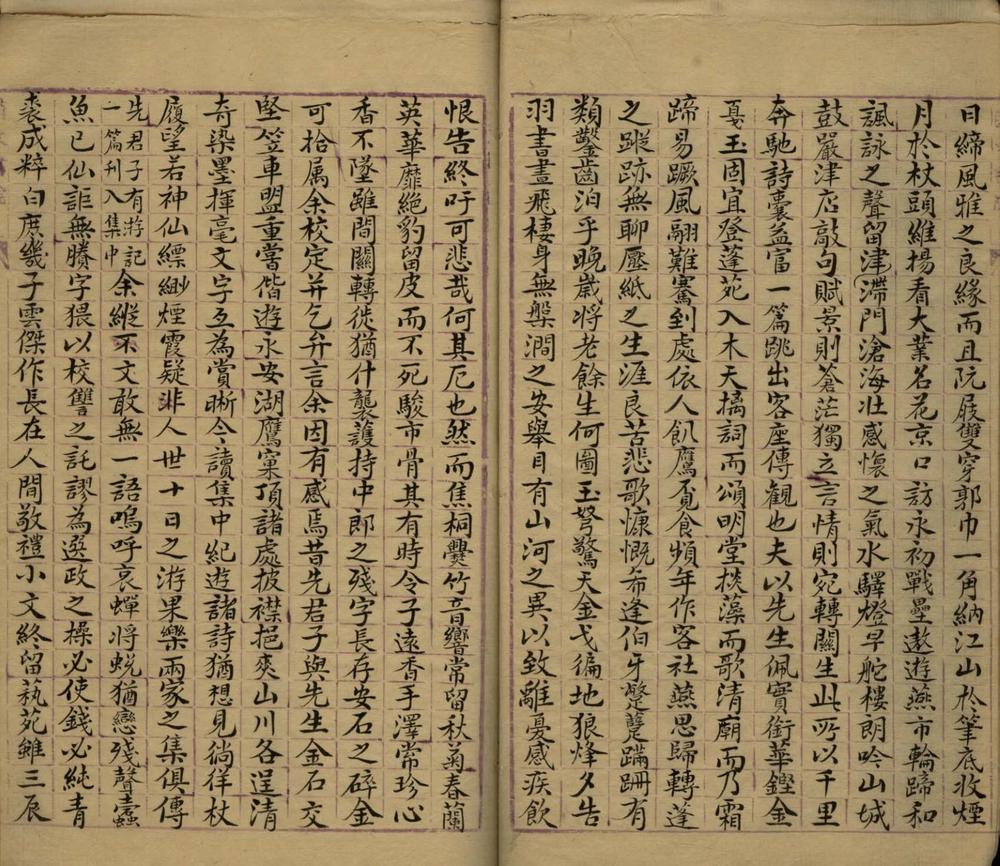 日締風雅之良緣而且阮屐雙穿郭巾一角納江山於筆底收煙
月於杖頭維揚看大業名花京口訪永初戰壘遨遊燕市輪蹄和
諷詠之聲留津滯門滄海壯感懷之氣水驛燈早舵樓朗吟山城
鼓嚴津店敲句賦景則蒼茫獨立言情則宛轉關生此所以千里
奔馳詩囊益富一篇跳出客座傳觀也夫以先生佩實銜華鏗金
戛玉固宜登蓬苑入木天摛詞而頌明堂掞藻而歌清廟而乃霜
蹄易蹶風翮難騫到處依人飢鷹覓食頻年作客社燕思歸轉蓬
之蹤跡無聊壓紙之生涯良苦悲歌慷慨布逢伯牙蹩躠蹣跚有
類鑿齒洎乎晚歲將老餘生何圖玉弩驚天金戈徧地狼烽夕告
羽書晝飛棲身無槃澗之安舉目有山河之異以致離憂感疾飲
恨告終吁可悲哉何其厄也然而焦桐爨竹音響常留秋菊春蘭
英華靡絕豹留皮而不死駿市骨其有時令子遠香手澤常珍心
香不墜雖間關轉徙猶什襲護持中郎之殘字長存安石之碎金
可拾属余校定并乞弁言余因有感焉昔先君子與先生金石交
堅笠車盟重嘗偕遊永安湖鷹窠頂諸處披襟挹爽山川各逞清
奇染墨揮毫文字互為賞晰今讀集中紀遊諸詩猶想見徜徉杖
履望若神仙縹緲煙霞疑非人世十日之游果樂兩家之集俱傳
先君子有游記一篇刊入集中余縱不文敢無一語嗚呼哀蟬將蛻猶戀殘聲蠹
魚已仙詎無賸字猥以校讐之託謬為選政之操必使錢必純青
裘成粹白庶幾子雲傑作長在人間敬禮小文終留藝苑雖三辰